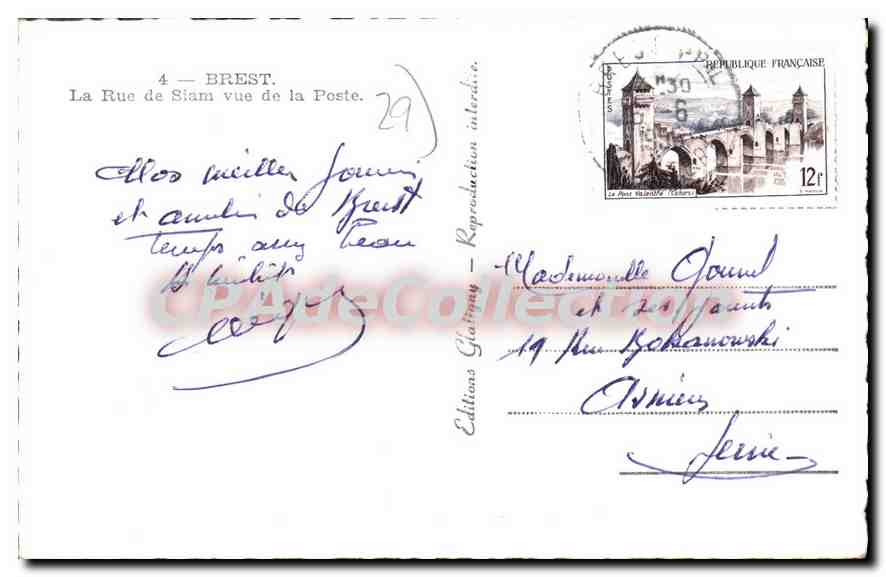 4 — BREST.
La Rue de Siam vue de la Poste.
29
Mes meilleurs
et amitiés de Brest
temps assez beau
A bientôt
Editions Glatigny — Reproduction interdite.
BREST
30
6
RÉPUBLIQUE FRANÇAISE
POSTES
Le Pont Valentré (Cahors)
12f
Mademoiselle
et ses parents
19 Rue Bokanowski
Asnières
Seine
CPAdeCollection